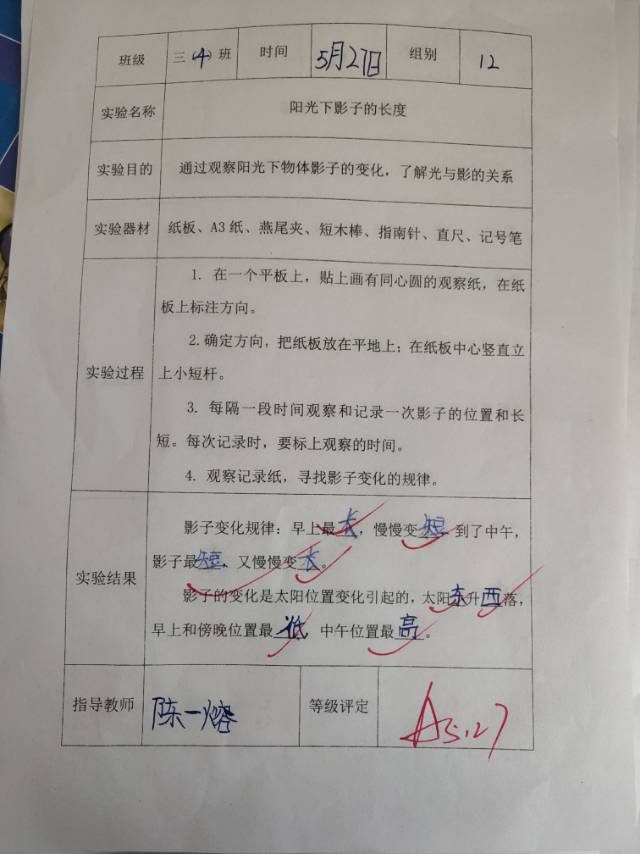 班级 三（4）班 时间 5月27日 组别 12
实验名称 阳光下影子的长度
实验目的 通过观察阳光下物体影子的变化，了解光与影的关系
实验器材 纸板、A3 纸、燕尾夹、短木棒、指南针、直尺、记号笔
实验过程
1. 在一个平板上，贴上画有同心圆的观察纸，在纸
板上标注方向。
2.确定方向，把纸板放在平地上；在纸板中心竖直立
上小短杆。
3. 每隔一段时间观察和记录一次影子的位置和长
短。每次记录时，要标上观察的时间。
4. 观察记录纸，寻找影子变化的规律。
实验结果
影子变化规律：早上最长，慢慢变短 到了中午，
影子最短，又慢慢变长。
影子的变化是太阳位置变化引起的，太阳东升西落，
早上和傍晚位置最低，中午位置最高。
指导教师 陈一熔 等级评定 A 5.27